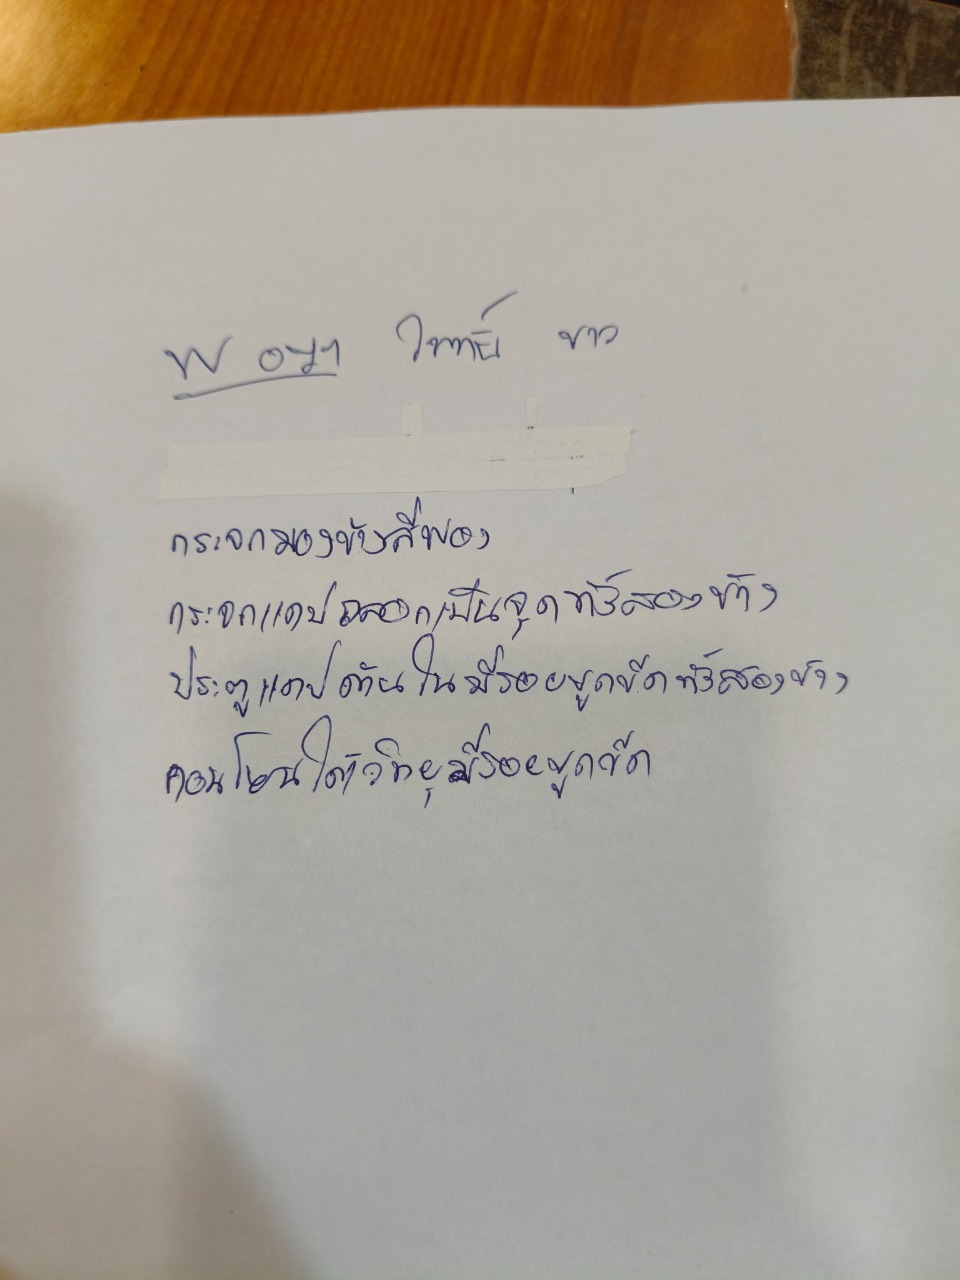 ขาว
กระจกมองข้างสีพอง
กระจกแคปลอกเป็นจุดทั้งสองข้าง
ประตูแคปด้านในมีรอยขูดขีดทั้งสองข้าง
คอนโซนใต้วิทยุมีรอยขูดขีด